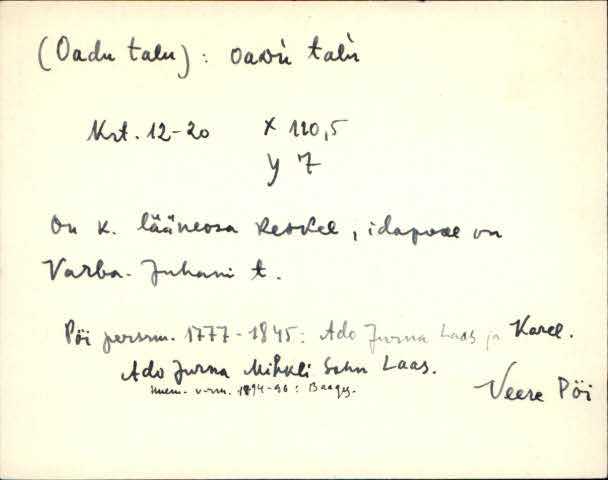 (Oadu talu): oaᴅù talù
Krt. 12-20 x 120,5
y 7
On k. lääneosa keskel, idapool on
Varba-Juhani t.
Pöi persrm. 1777-1845: Ado Jurna Laas ja Karel.
Ado Jurna Mihkli Sohn Laas.
1894-96:
Veere Pöi